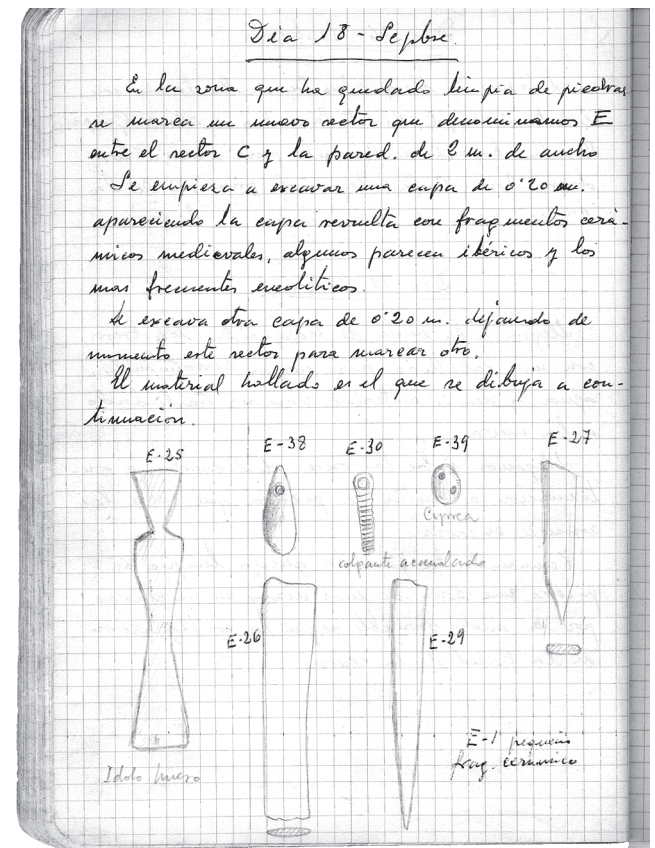 Día 18 - Sepbre.
En la zona que ha quedado limpia de piedras
se marca un nuevo sector que denominamos E
entre el sector C y la pared. de 2 m. de ancho
Se empieza a excavar una capa de 0'20 m.
apareciendo la capa revuelta con fragmentos cerá-
micos medievales, algunos parecen ibéricos y los
mas frecuentes eneolíticos.
Se excava otra capa de 0'20 m. dejando de
momento este sector para marcar otro.
El material hallado es el que se dibuja a con-
tinuación.
E-25
E-38
E-30
E-39
E-27
Ciprea
colgante acanalado
E-26
E-29
E-1 pequeño
frag. ceramico
Idolo hueso